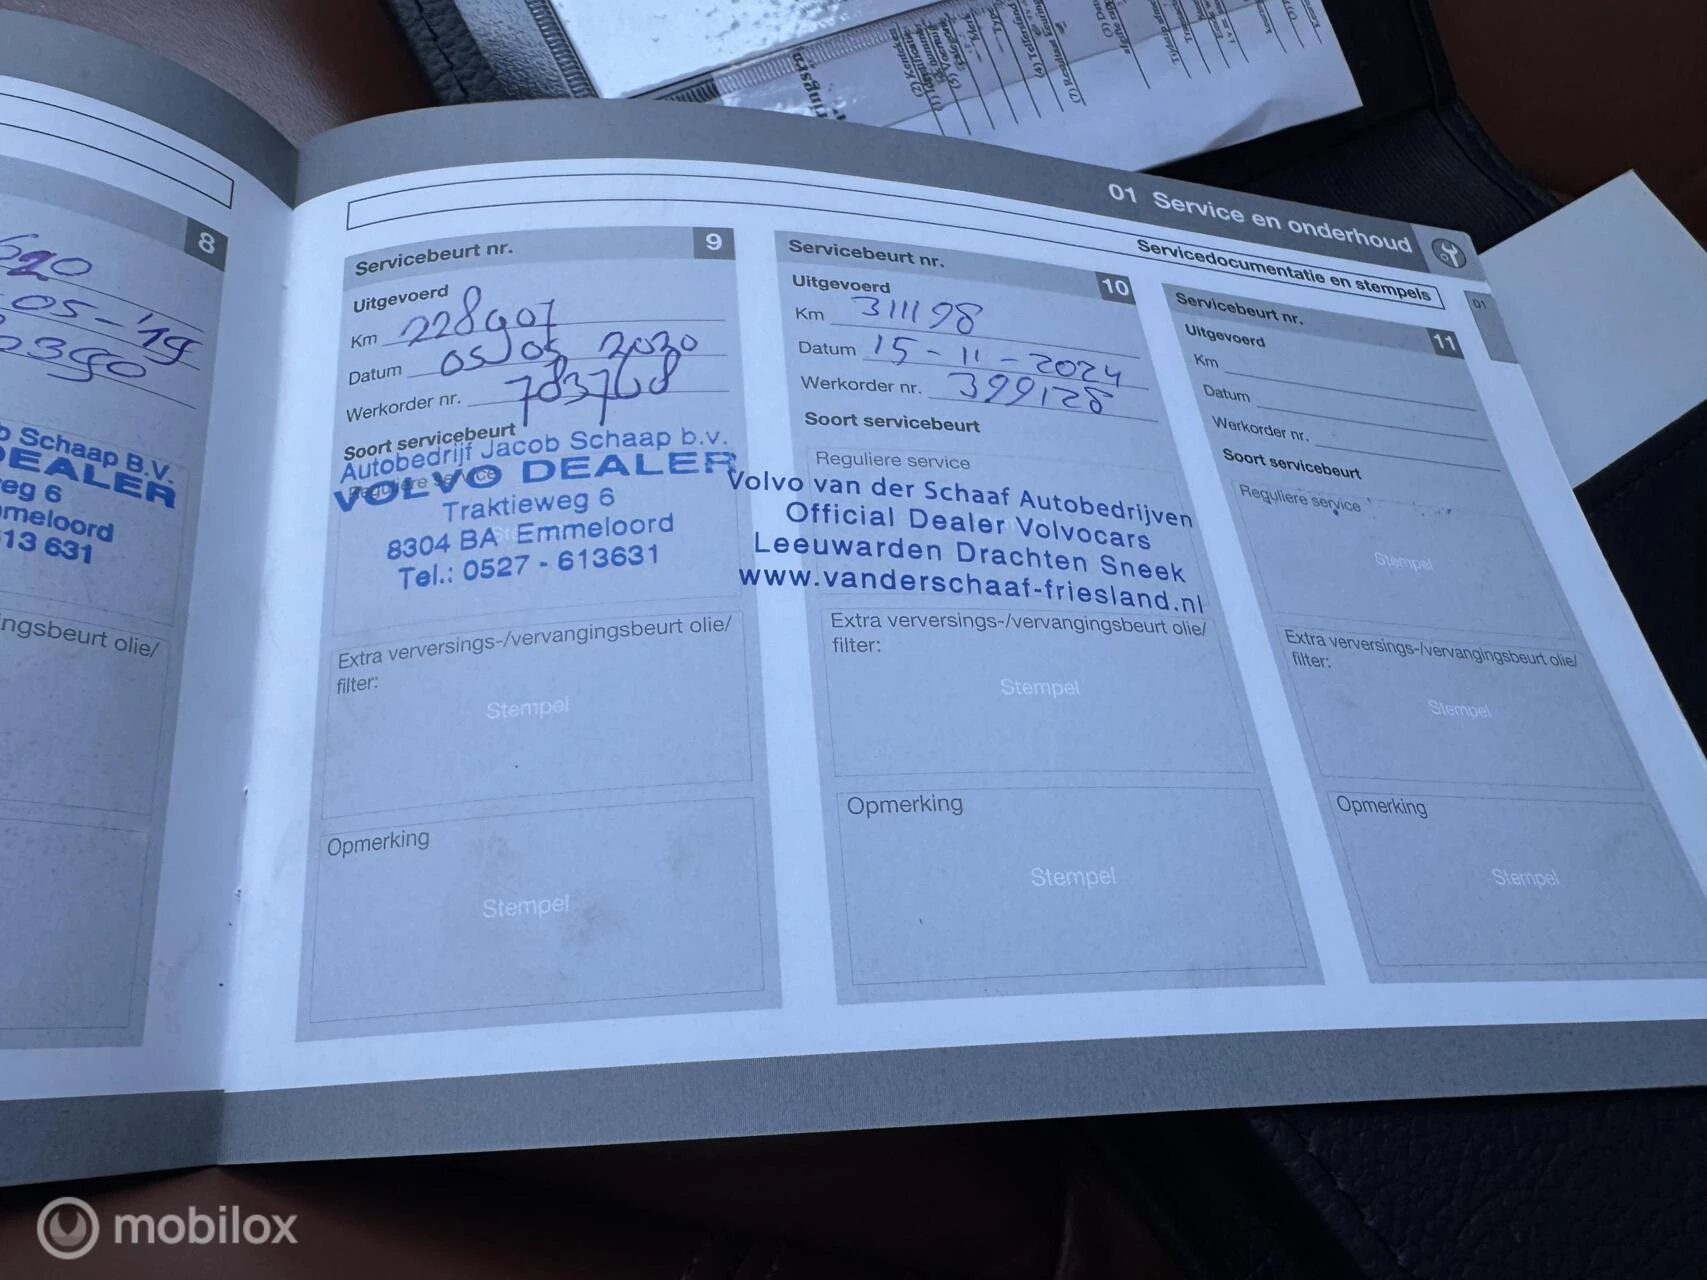 01 Service en onderhoud
Servicedocumentatie en stempels
01
8
05-'19
Schaap B.V.
DEALER
eg 6
meloord
13 631
ingsbeurt olie/
Servicebeurt nr. 9
Uitgevoerd
Km 228907
Datum 05 05 2020
Werkorder nr. 783768
Soort servicebeurt
Autobedrijf Jacob Schaap b.v.
Reguliere service
VOLVO DEALER
Traktieweg 6
8304 BA Emmeloord
Tel.: 0527 - 613631
Extra verversings-/vervangingsbeurt olie/
filter:
Stempel
Opmerking
Stempel
Servicebeurt nr. 10
Uitgevoerd
Km 311198
Datum 15-11-2024
Werkorder nr. 399128
Soort servicebeurt
Reguliere service
Volvo van der Schaaf Autobedrijven
Official Dealer Volvocars
Leeuwarden Drachten Sneek
www.vanderschaaf-friesland.nl
Extra verversings-/vervangingsbeurt olie/
filter:
Stempel
Opmerking
Stempel
Servicebeurt nr. 11
Uitgevoerd
Km
Datum
Werkorder nr.
Soort servicebeurt
Reguliere service
Stempel
Extra verversings-/vervangingsbeurt olie/
filter:
Stempel
Opmerking
Stempel
mobilox